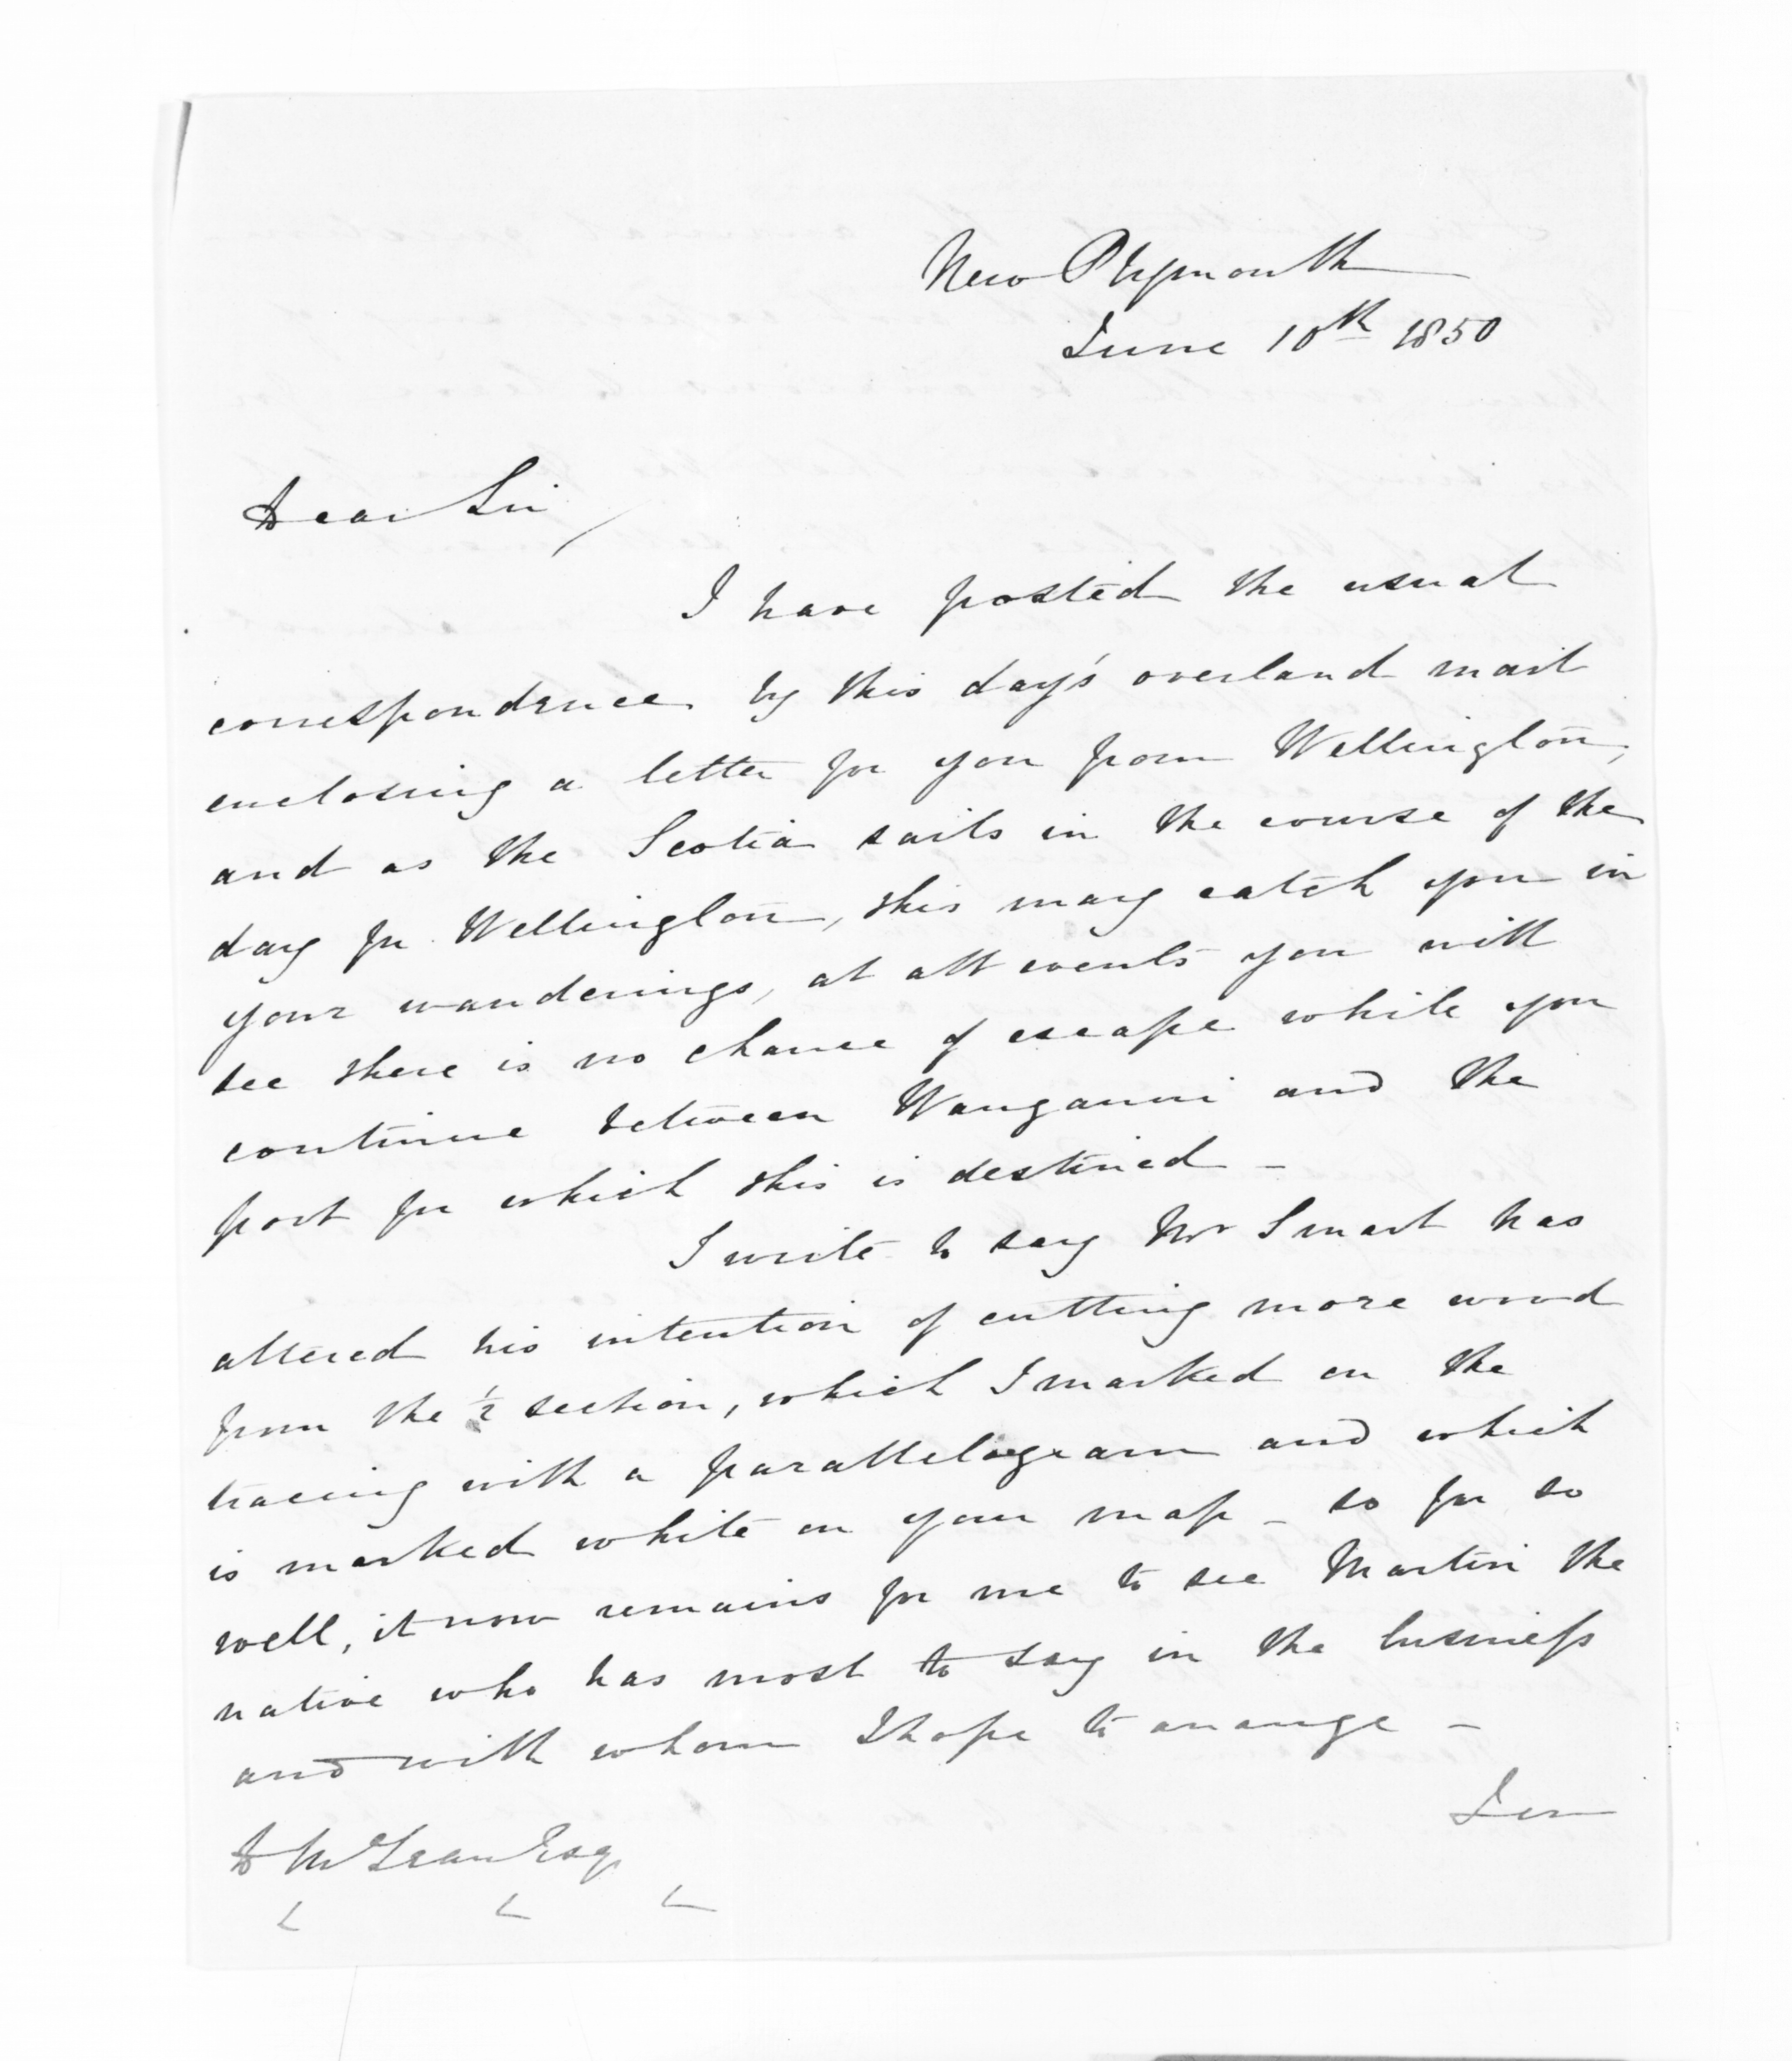 New Plymouth
June 10th 1850
Dear Sir,
I have posted the usual
correspondence by this day's overland mail
enclosing a letter for you from Wellington,
and as the Scotia sails in the course of the
day for Wellington, this may catch you in
your wanderings, at all events you will
see there is no chance of escape while you
continue between Wanganui and the
port for which this is destined -
I write to say Mr Smart has
altered his intention of cutting more wood
from the ½ section, which I marked on the
tracing with a parallelogram and which
is marked white on your map - so far so
well, it now remains for me to see Martin the
native who has most to say in the business
and with whom I hope to arrange -
D McLean Esq